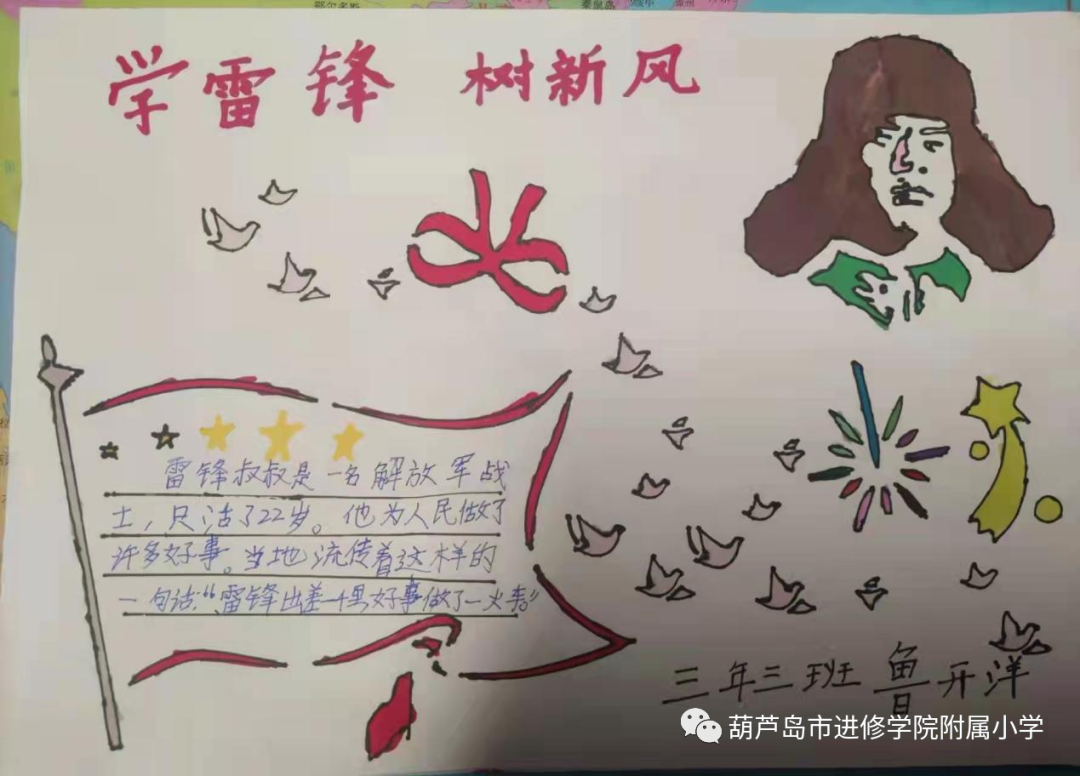 学雷锋 树新风
雷锋叔叔是一名解放军战
士，只活了22岁。他为人民做了
许多好事。当地流传着这样的
一句话：“雷锋出差一千里好事做了一火车。”
三年三班 鲁开洋
葫芦岛市进修学院附属小学